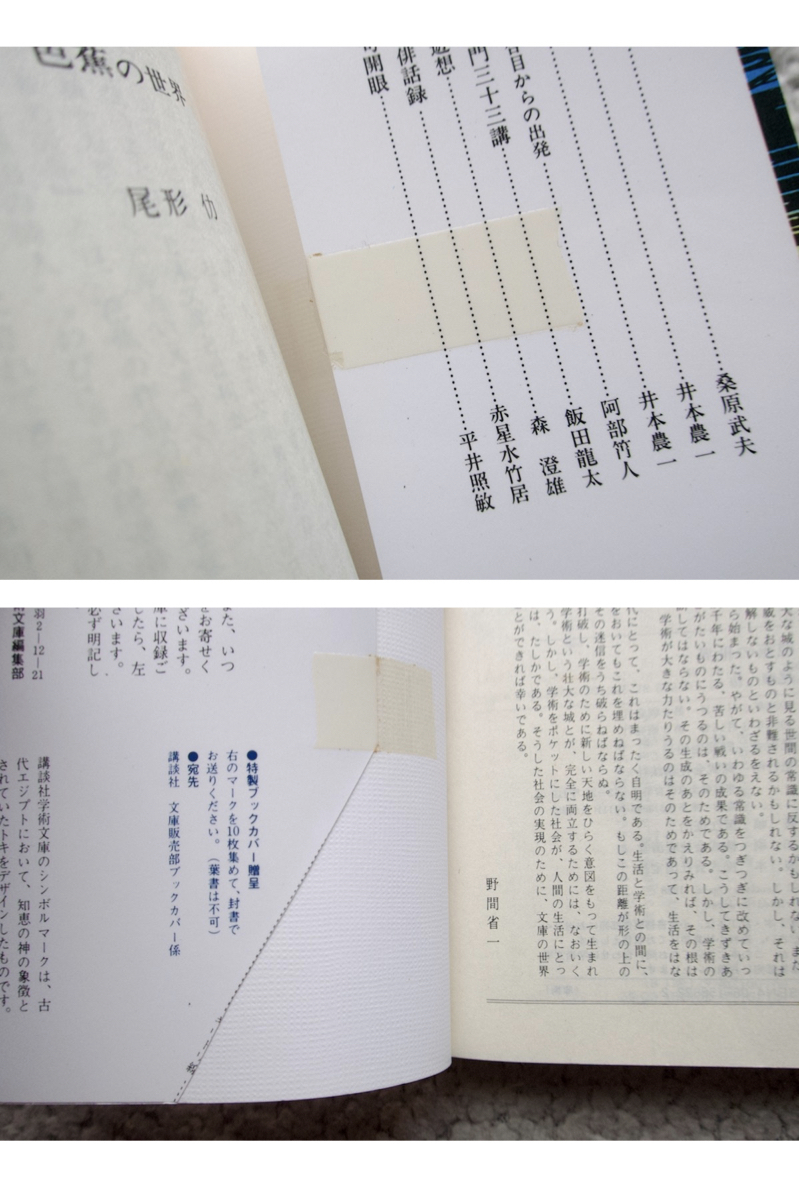 芭蕉の世界
尾形 仂
桑原武夫
井本農一
井本農一
阿部筲人
からの出発 飯田龍太
門三十三講 森 澄雄
遊想 赤星水竹居
俳話録 平井照敏
開眼
大な城のように見る世間の常識に反するかもしれない。また、
威をおとすものと非難されるかもしれない。しかし、それは
解しないものといわざるをえない。
ら始まった。やがて、いわゆる常識をつぎつぎに改めていっ
千年にわたる、苦しい戦いの成果である。こうしてきずきあ
がたいものにうつるのは、そのためである。しかし、学術の
断してはならない。その生成のあとをかえりみれば、その根は
学術が大きな力たりうるのはそのためであって、生活をはな
代にとって、これはまったく自明である。生活と学術との間に、
をおいてもこれを埋めねばならない。もしこの距離が形の上の
その迷信をうち破らねばならぬ。
打破し、学術のために新しい天地をひらく意図をもって生まれ
学術という壮大な城とが、完全に両立するためには、なおいく
う。しかし、学術をポケットにした社会が、人間の生活にとっ
は、たしかである。そうした社会の実現のために、文庫の世界
とができれば幸いである。
野間省一
また、いつ
をお寄せく
ざいます。
庫に収録ご
したら、左
ざいます。
必ず明記し
羽2-12-21
術文庫編集部
●特製ブックカバー贈呈
右のマークを10枚集めて、封書で
お送りください。(葉書は不可)
●宛先
講談社 文庫販売部ブックカバー係
講談社学術文庫のシンボルマークは、古
代エジプトにおいて、知恵の神の象徴と
されていたトキをデザインしたものです。